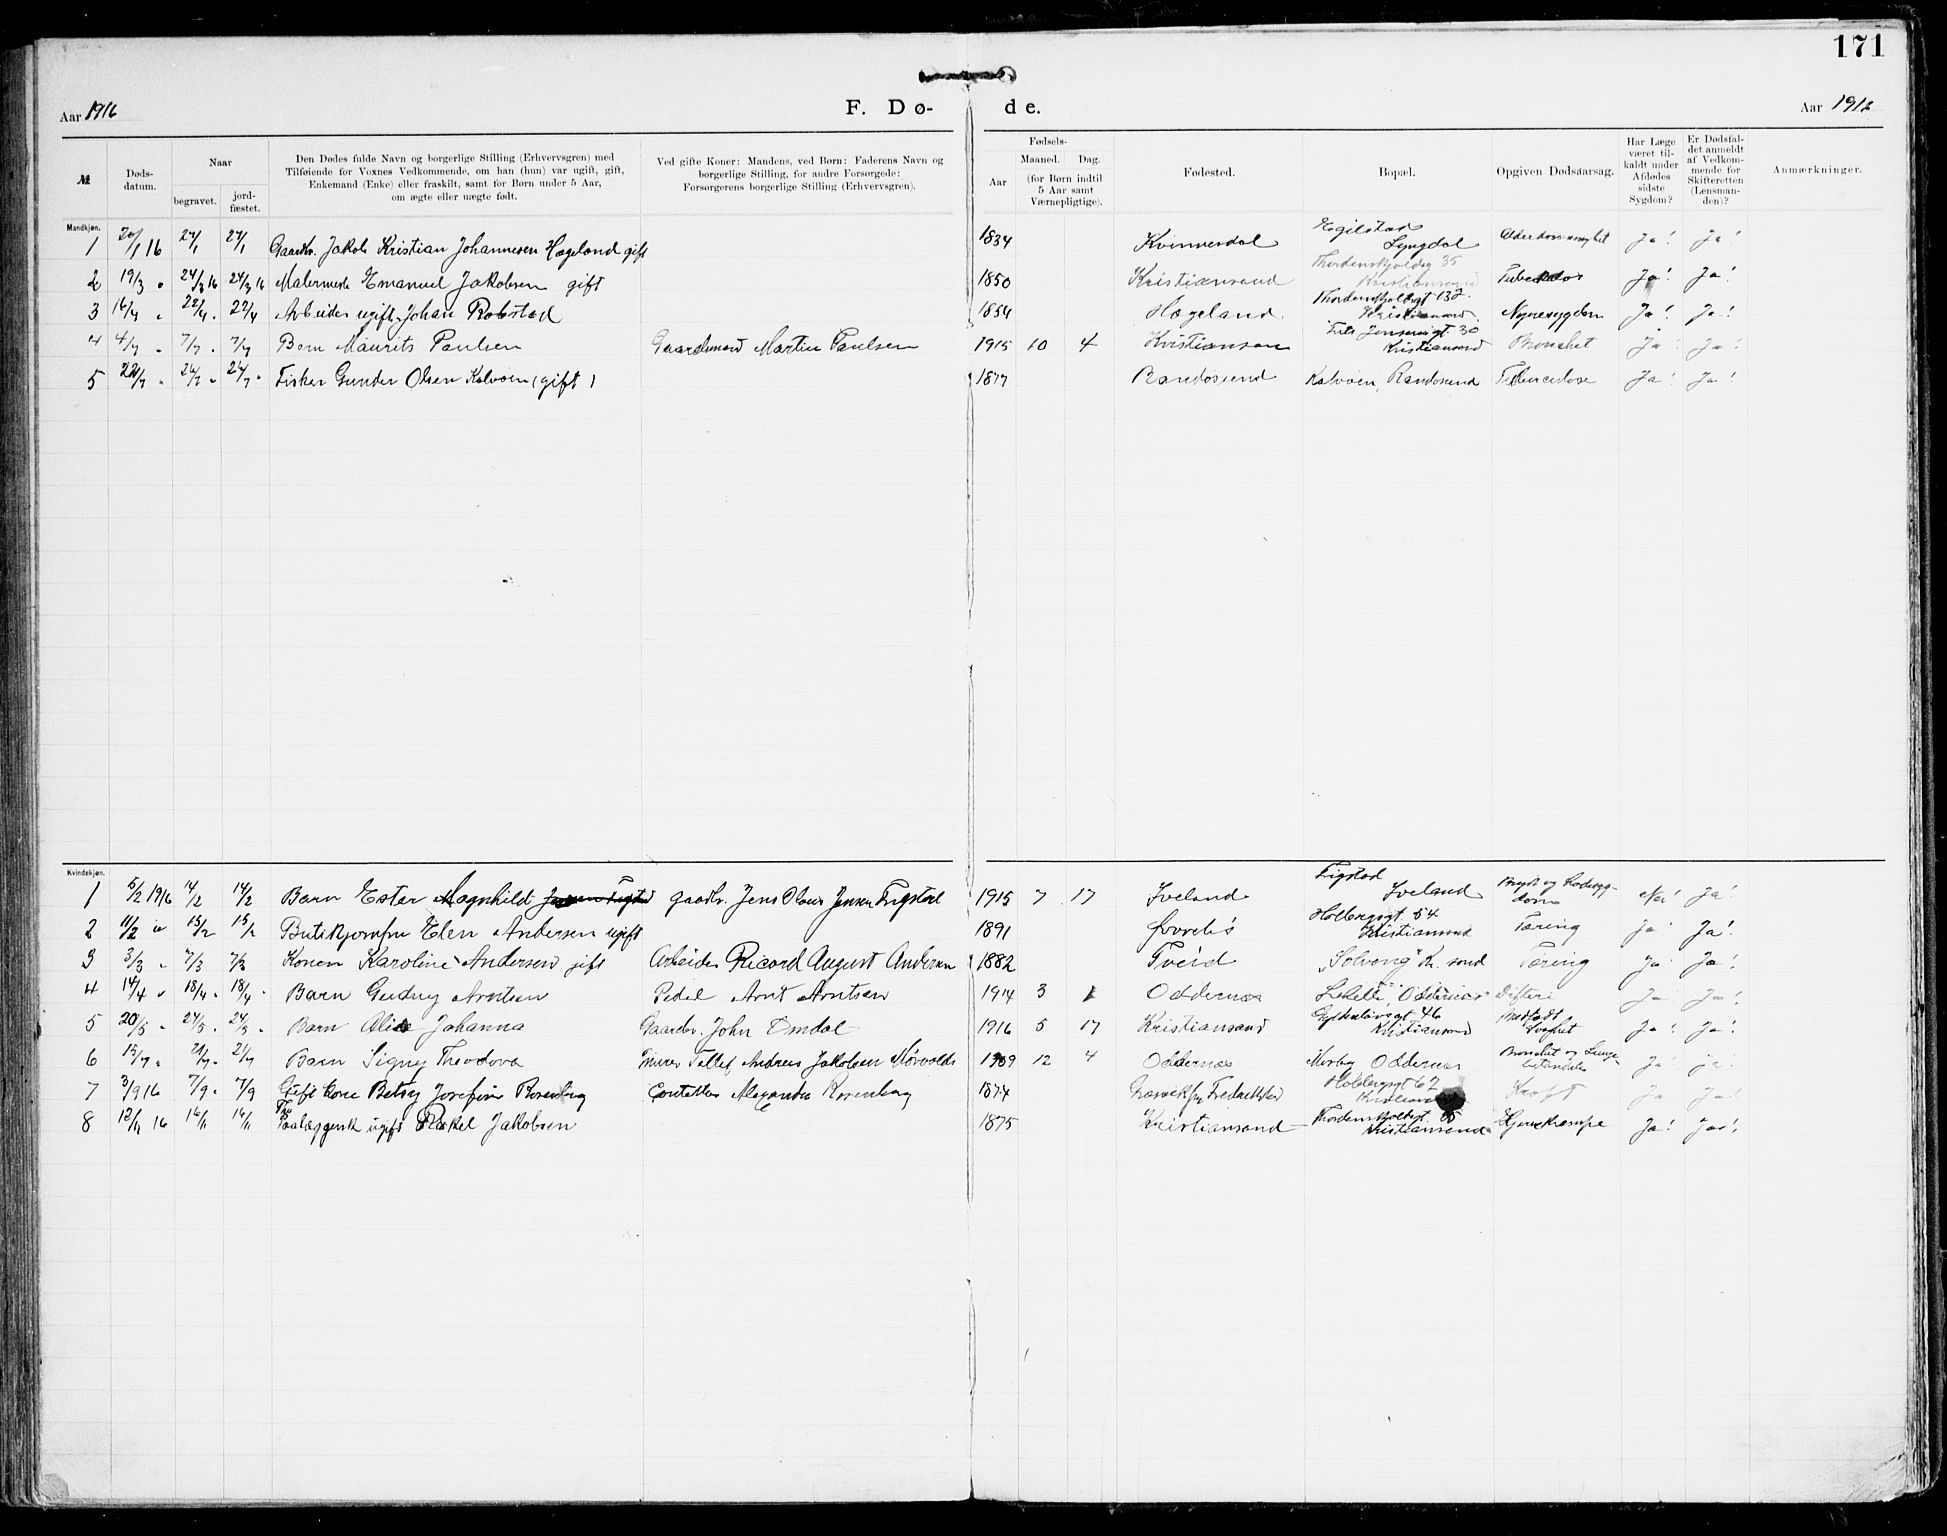 171
Aar 1916
F. Dø-
de.
Aar 1916
№
Døds-
datum.
Naar
begravet.
jord-
fæstet.
Den Dødes fulde Navn og borgerlige Stilling (Erhvervsgren) med
Tilføiende for Voxnes Vedkommende, om han (hun) var ugift, gift,
Enkemand (Enke) eller fraskilt, samt for Børn under 5 Aar,
om ægte eller uægte født.
Ved gifte Koner: Mandens, ved Børn: Faderens Navn og
borgerlige Stilling, for andre Forsørgede:
Forsørgerens borgerlige Stilling (Erhvervsgren).
Fødsels-
Aar
Maaned.
Dag.
(for Børn indtil
5 Aar samt
Værnepligtige).
Fødested.
Bopæl.
Opgiven Dødsaarsag.
Har Læge
været til-
kaldt under
Afdødes
sidste
Sygdom?
Er Dødsfal-
det anmeldt
af Vedkom-
mende for
Skifteretten
(Lensman-
den)?
Anmærkninger.
Mandkjøn.
1 20/1 16 24/1 24/1 Gaardbr. Jakob Kristian Johannesen Hægeland gift 1834 Kvinnesdal Egilstad Lyngdal Alderdomssvaghet Ja! Ja!
2 19/3 " 24/3 16 24/3 16 Malermester Emanuel Jakobsen gift 1850 Kristianssand 35 Kristianssand Ja! Ja!
3 16/4 " 22/4 " 22/4 Arbeider ugift Johan Robstad 1854 Hægeland Kristianssand Nyresygdom Ja! Ja!
4 4/7 " 7/7 " 7/7 Barn Maurits Paulsen Gaardmand Martin Paulsen 1915 10 4 Kristianssan 30 Kristianssand Bronchit Ja! Ja!
5 22/7 " 26/7 " 26/7 " Fisker Gunder Olsen Kalvøen (gift) 1877 Randøsund Kalvøen, Randøsund Tuberculose Ja! Ja!
Kvindekjøn.
1 5/2 1916 14/2 14/2 Barn Ester Magnhild Gaardbr. Jens Olaus Jensen Frigstad 1915 7 17 Iveland Frigstad Iveland Nei! Ja!
2 11/2 " 15/2 15/2 Butikjomfru Elen Andersen ugift 1891 Holbergsgt 54 Kristianssand Tæring Ja! Ja!
3 3/3 " 7/3 7/3 Konen Karoline Andersen gift Arbeider Ricard August Andersen 1882 Tveid "Solvang" Kr. sand Tæring Ja! Ja!
4 14/4 " 18/4 " 18/4 " Barn Gudny Arntsen Pedel Arnt Arntsen 1914 3 1 Oddernæs Oddernæs Difteri Ja! Ja!
5 20/5 " 24/5 " 24/5 " Barn Alise Johanna Gaardbr. John Omdal 1916 5 17 Kristianssand 46 Kristianssand Medfødt Svaghet Ja! Ja!
6 15/7 " 21/7 " 21/7 Barn Signy Theodora Murer Tellef Andreas Jakobsen 1909 12 4 Oddernæs Mosby Oddernæs Bronchit og Lunge- Ja! Ja!
7 3/9 16 7/9 " 7/9 Gift Kone Betsy Josefine Rosenberg Alexander Rosenberg 1874 Fredrikstad Holbergsgt 62 Kræft Ja Ja!
8 12/11 16 16/11 16/11 ugift Rakel Jakobsen 1875 Kristianssand Kristianssand Hjertekrampe Ja! Ja!